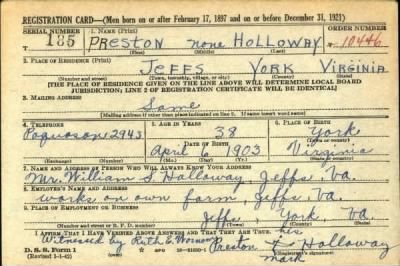 REGISTRATION CARD—(Men born on or after February 17, 1897 and on or before December 31, 1921)
SERIAL NUMBER 1. NAME (Print) ORDER NUMBER
185 PRESTON none HOLLOWAY 10446
(First) (Middle) (Last)
2. PLACE OF RESIDENCE (Print)
JEFFS YORK VIRGINIA
(Number and street) (Town, township, village, or city) (County) (State)
[THE PLACE OF RESIDENCE GIVEN ON THE LINE ABOVE WILL DETERMINE LOCAL BOARD
JURISDICTION; LINE 2 OF REGISTRATION CERTIFICATE WILL BE IDENTICAL]
3. MAILING ADDRESS
Same
[Mailing address if other than place indicated on line 2. If same insert word same]
4. TELEPHONE 5. AGE IN YEARS 6. PLACE OF BIRTH
Poquoson 2943 38 York
DATE OF BIRTH (Town or county)
April 6 1903 Virginia
(Exchange) (Number) (Mo.) (Day) (Yr.) (State or country)
7. NAME AND ADDRESS OF PERSON WHO WILL ALWAYS KNOW YOUR ADDRESS
Mr. William S Holloway, Jeffs, Va.
8. EMPLOYER'S NAME AND ADDRESS
works on own farm, Jeffs, Va.
9. PLACE OF EMPLOYMENT OR BUSINESS
Jeffs, York, Va
(Number and street or R. F. D. number) (Town) (County) (State)
I AFFIRM THAT I HAVE VERIFIED ABOVE ANSWERS AND THAT THEY ARE TRUE. his
Witnessed by Ruth E. Preston X Holloway
D. S. S. Form 1 mark
(Registrant's signature)